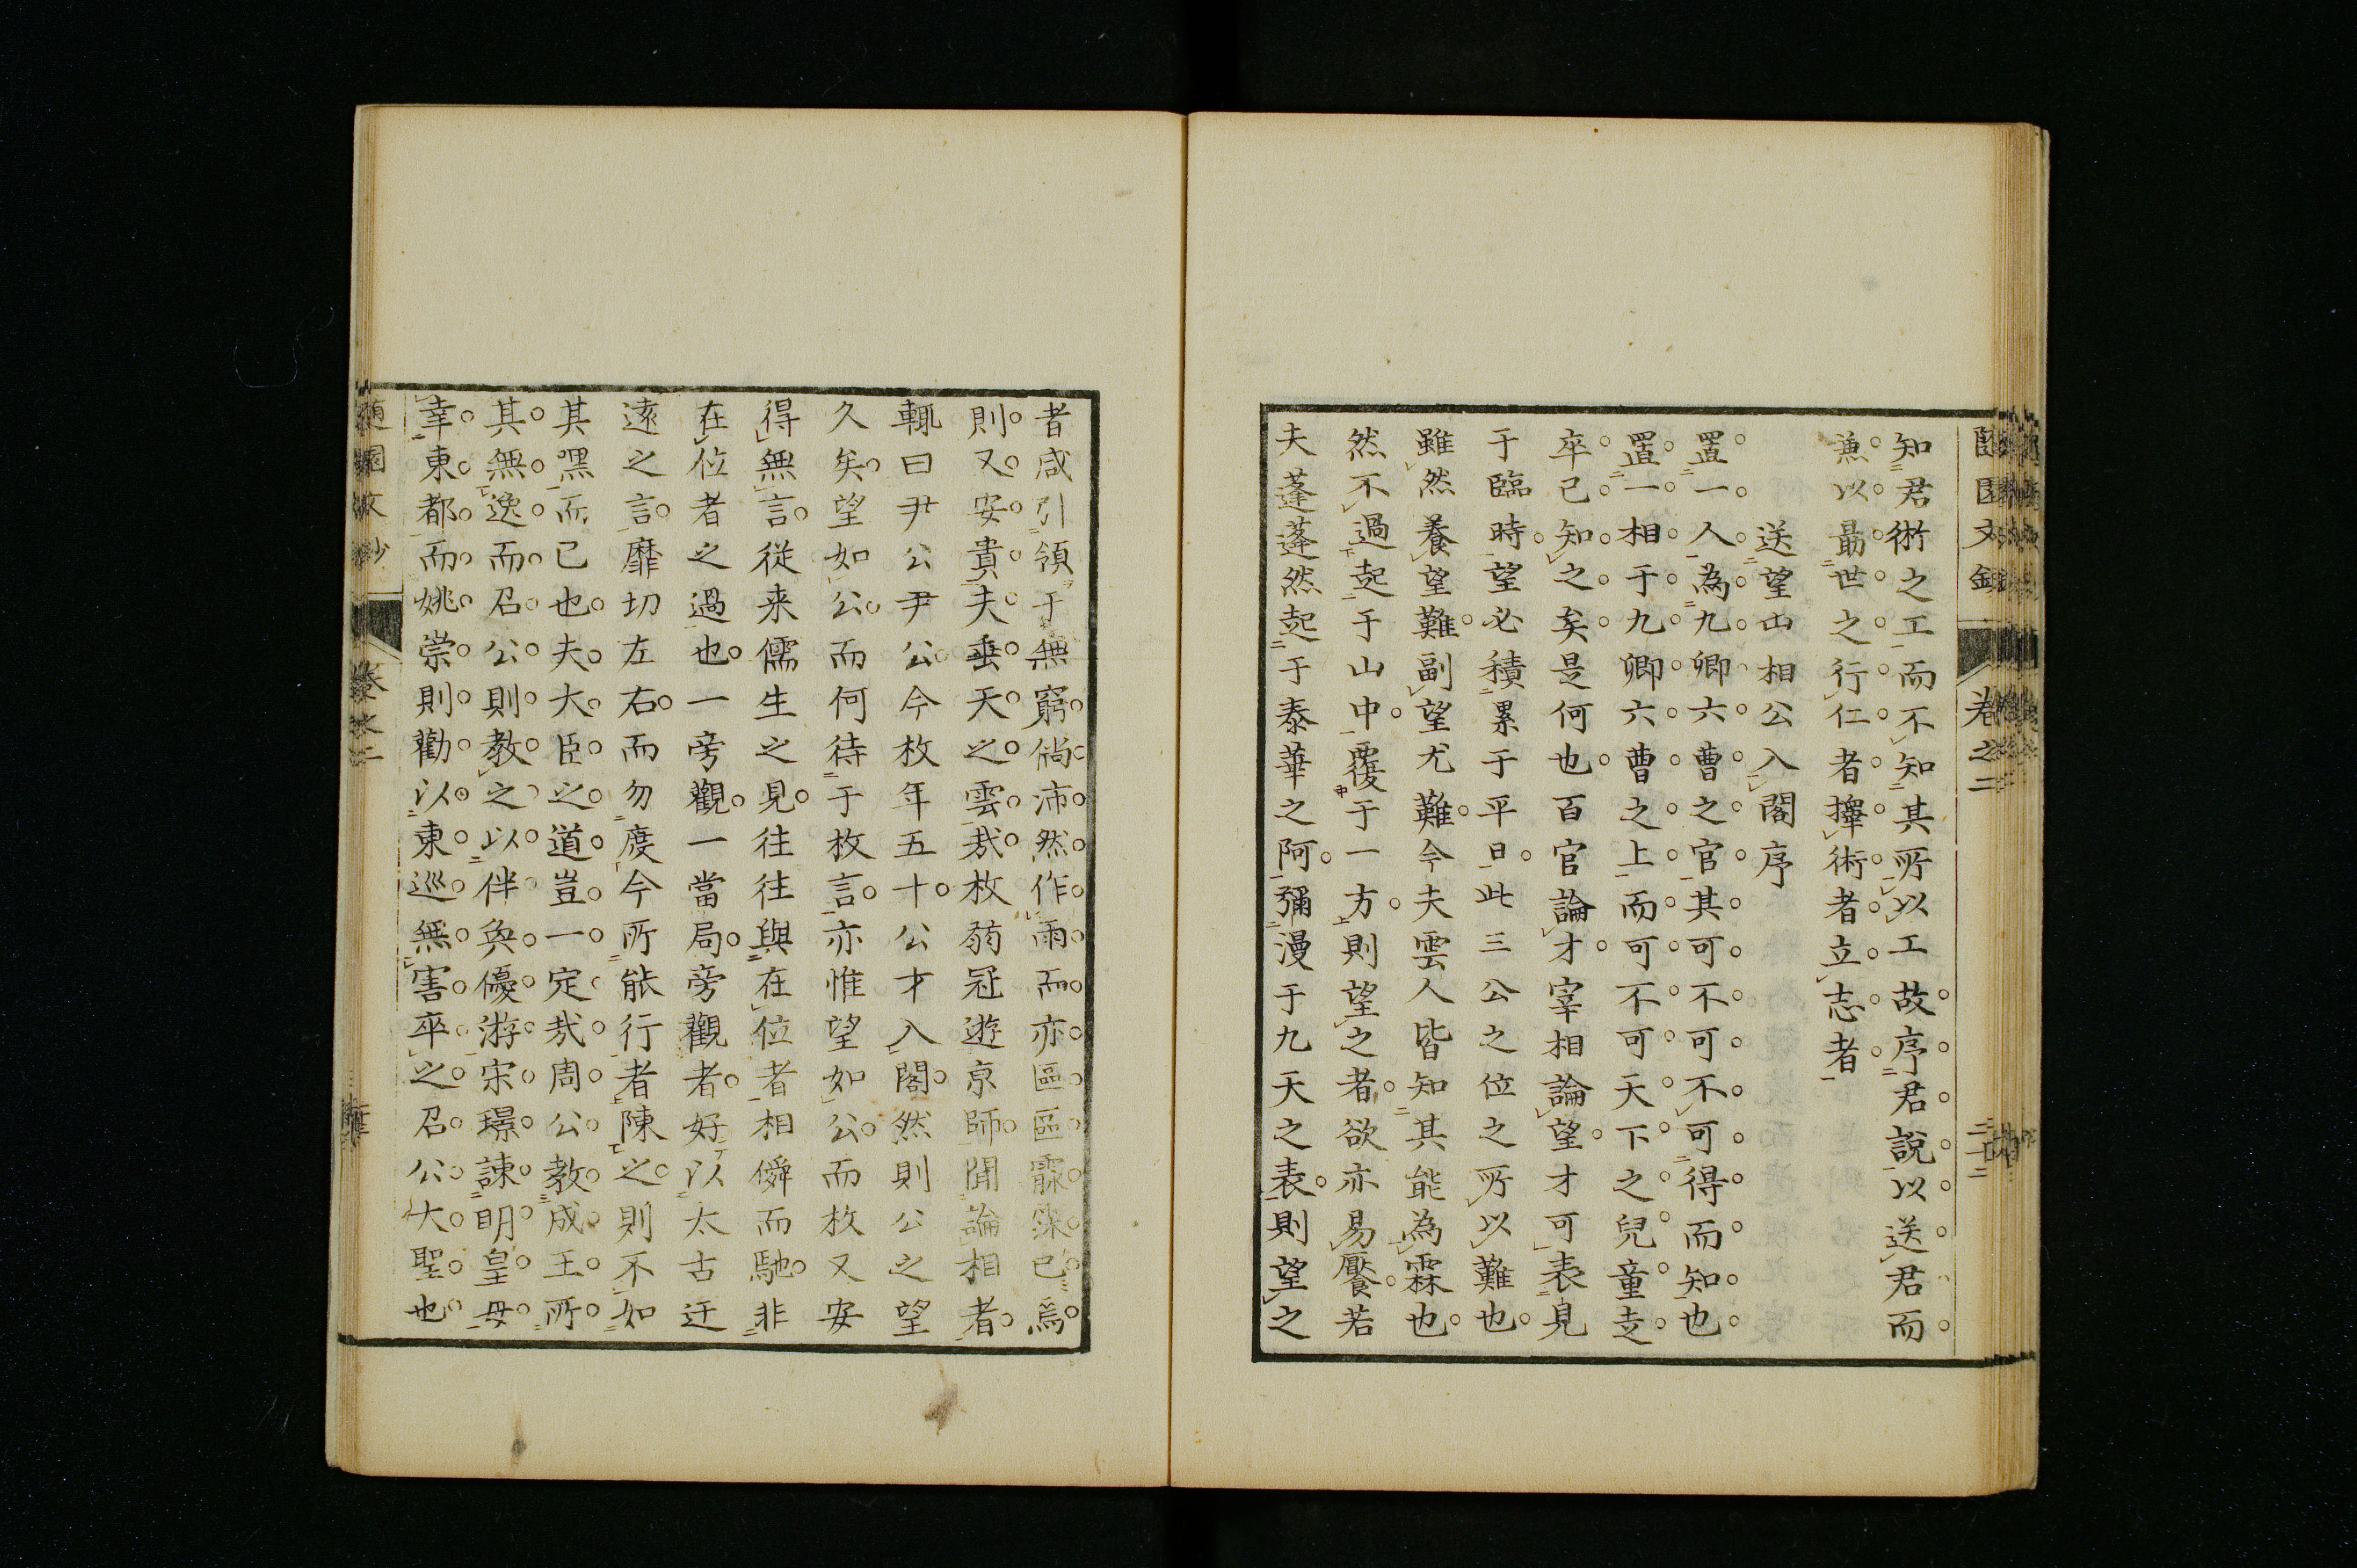 知君術之工而不知其所以工故序君說以送君而
兼以勗世之行仁者擇術者立志者
送望山相公入閣序
置一人為九卿六曹之官其可不可不可得而知也
置一相于九卿六曹之上而可不可天下之兒童走
卒已知之矣是何也百官論才宰相論望才可表見
于臨時望必積累于平日此三公之位之所以難也
雖然養望難副望尤難今夫雲人皆知其能為霖也
然不過起于山中覆于一方則望之者欲亦易饜若
夫蓬蓬然起于泰華之阿彌漫于九天之表則望之
卷之二
者咸引領于無窮倘沛然作雨而亦區區霢霂已焉
則又安貴夫垂天之雲哉枚弱冠遊京師聞論相者
輒曰尹公尹公今枚年五十公才入閣然則公之望
久矣望如公而何待于枚言亦惟望如公而枚又安
得無言從来儒生之見往往與在位者相僢而馳非
在位者之過也一旁觀一當局旁觀者好以太古迂
遠之言靡切左右而勿度今所能行者陳之則不如
其嘿而已也夫大臣之道豈一定哉周公教成王所
其無逸而召公則教之以伴奐優游宋璟諫明皇毋
幸東都而姚崇則勸以東巡無害卒之召公大聖也
隨園文鈔 卷之二